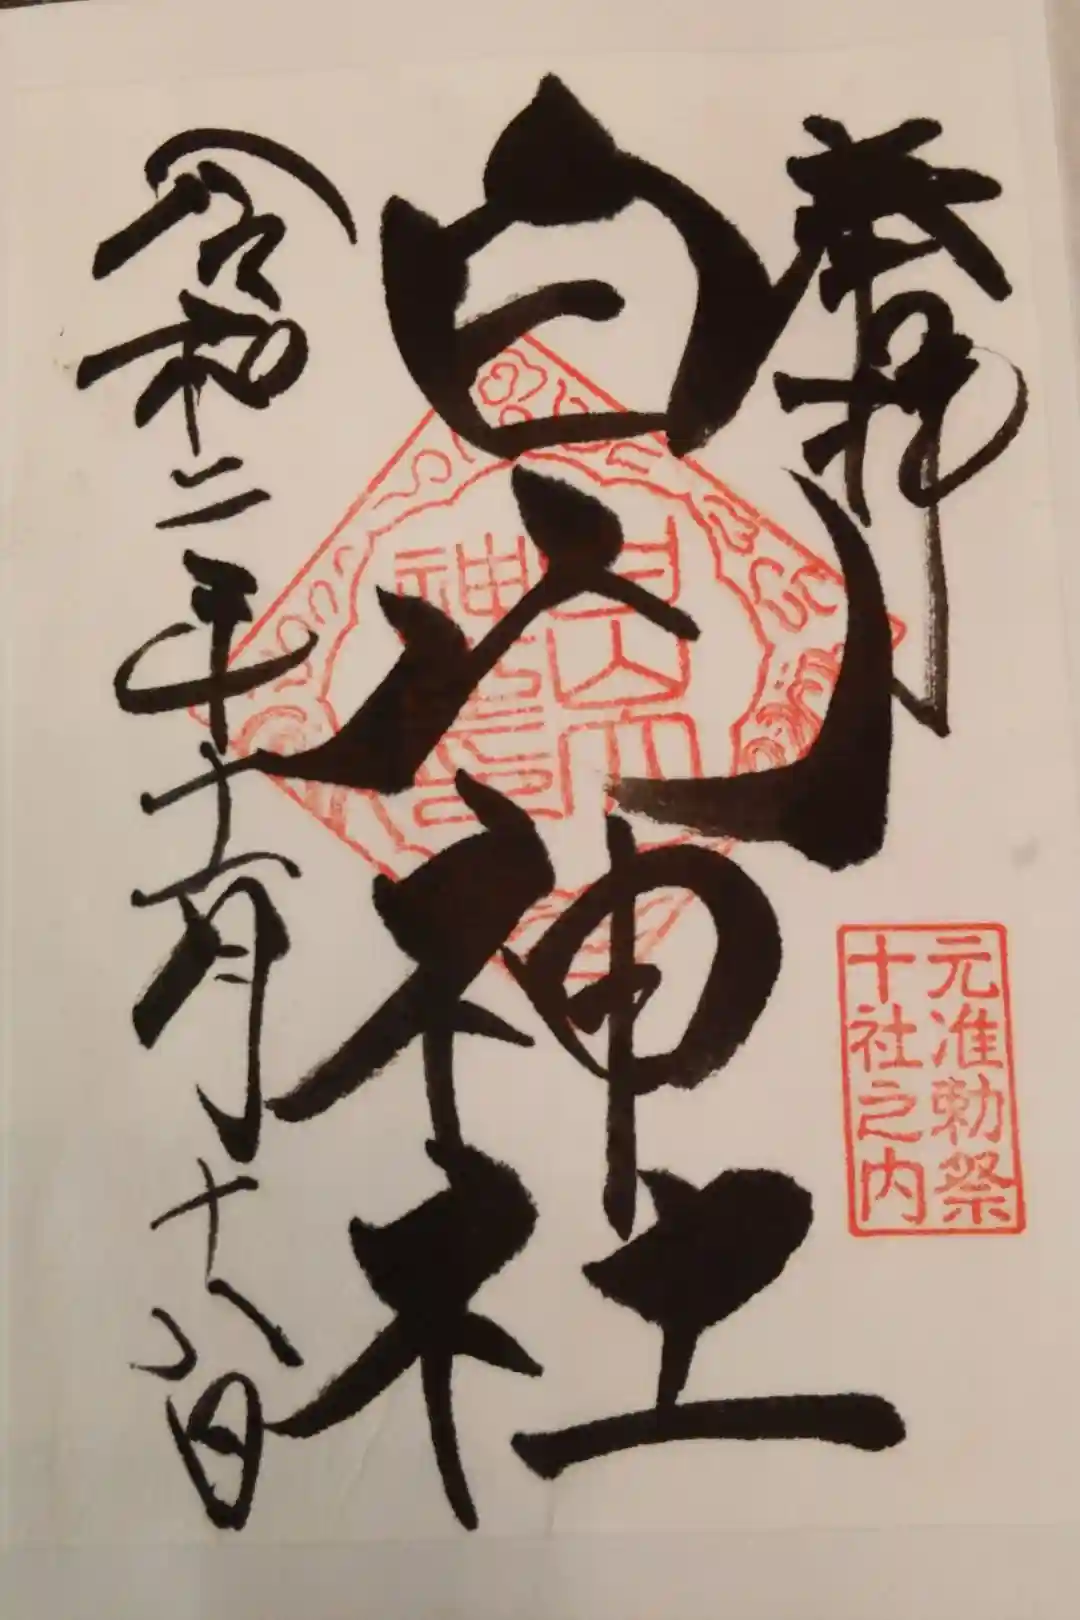 奉拝
白山神社
令和二年十一月十八日
元准勅祭
十社之内